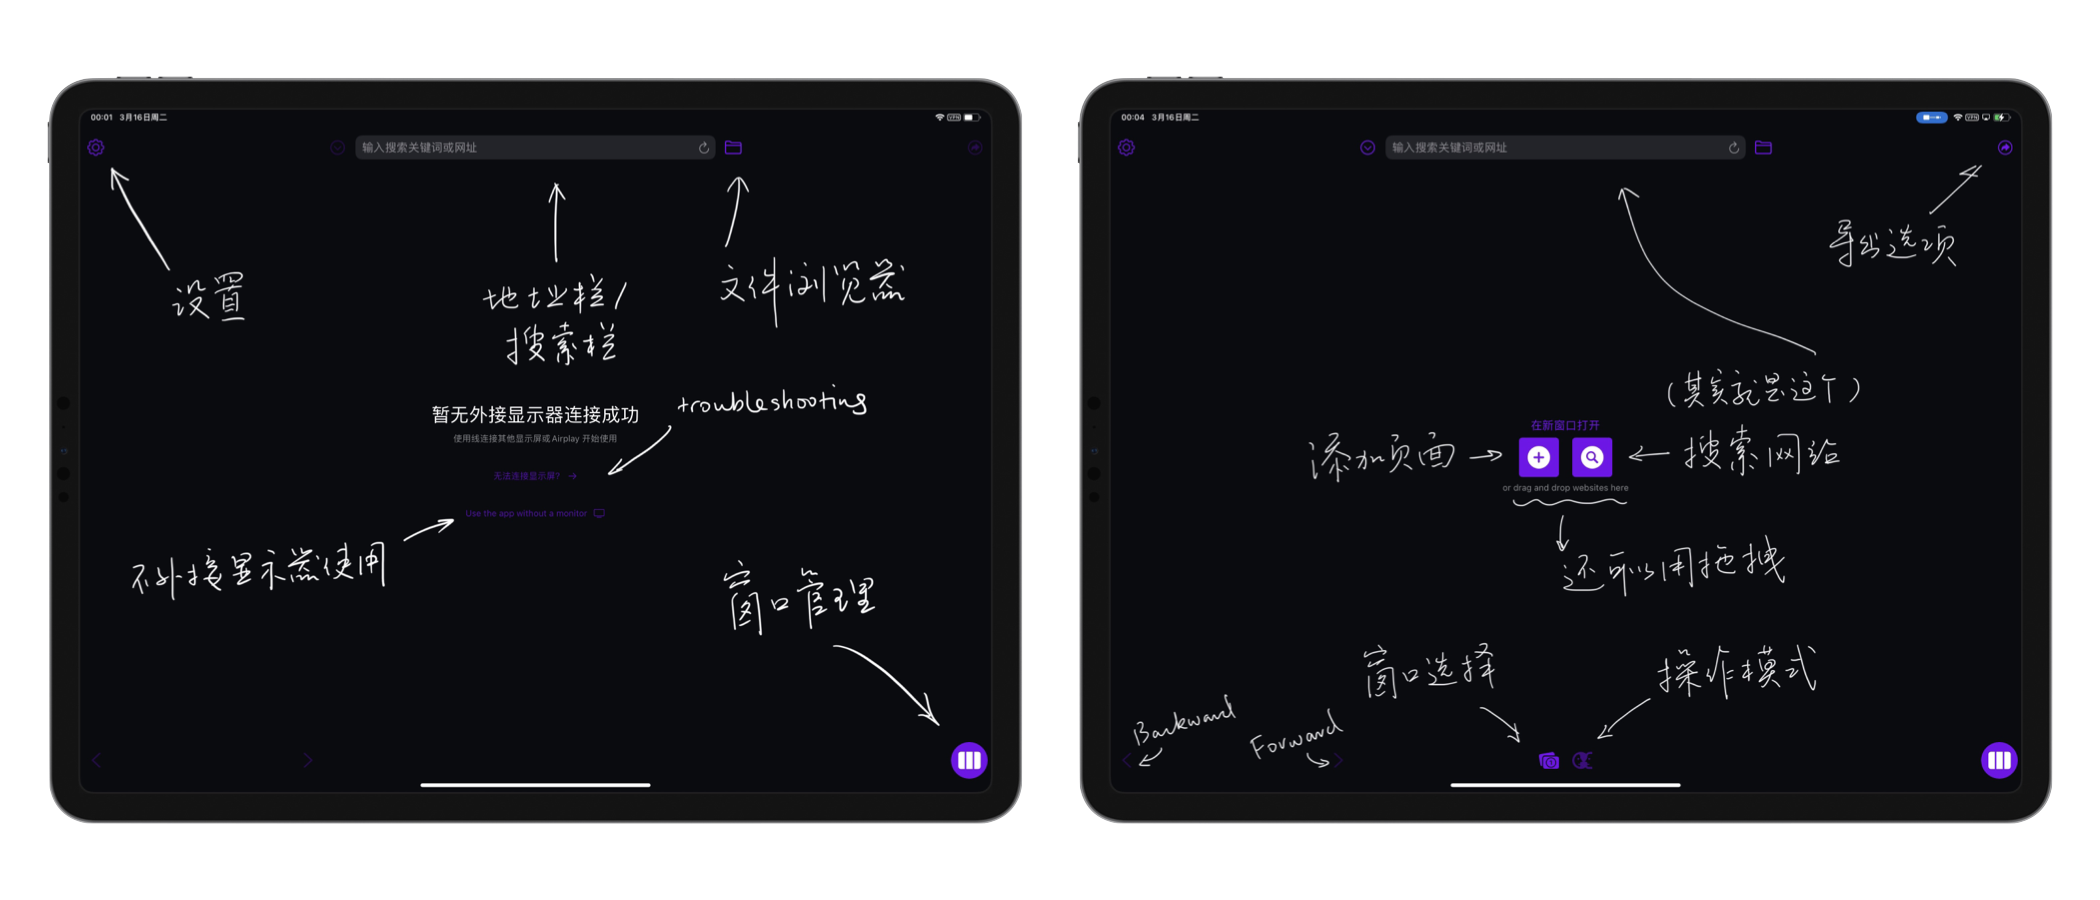 00:01 3月16日周二
VPN
输入搜索关键词或网址
设置
地址栏/
搜索栏
文件浏览器
暂无外接显示器连接成功
使用线连接其他显示屏或 Airplay 开始使用
troubleshooting
无法连接显示屏? →
Use the app without a monitor
不外接显示器使用
窗口管理
00:04 3月16日周二
VPN
输入搜索关键词或网址
导出选项
(其实就是这个)
在新窗口打开
添加页面
搜索网站
or drag and drop websites here
还可以用拖拽
窗口选择
操作模式
Backward
Forward